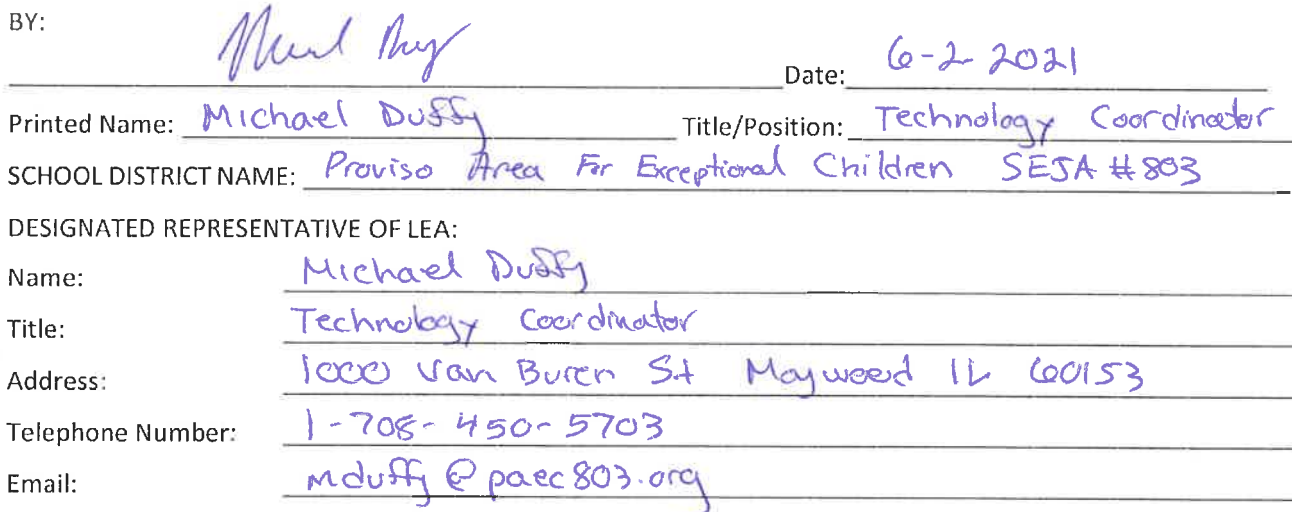 BY:
Date: 6-2-2021
Printed Name: Michael Duffy Title/Position: Technology Coordinator
SCHOOL DISTRICT NAME: Proviso Area For Exceptional Children SEJA #803
DESIGNATED REPRESENTATIVE OF LEA:
Name: Michael Duffy
Title: Technology Coordinator
Address: 1000 Van Buren St Maywood IL 60153
Telephone Number: 1-708-450-5703
Email: mduffy@paec803.org